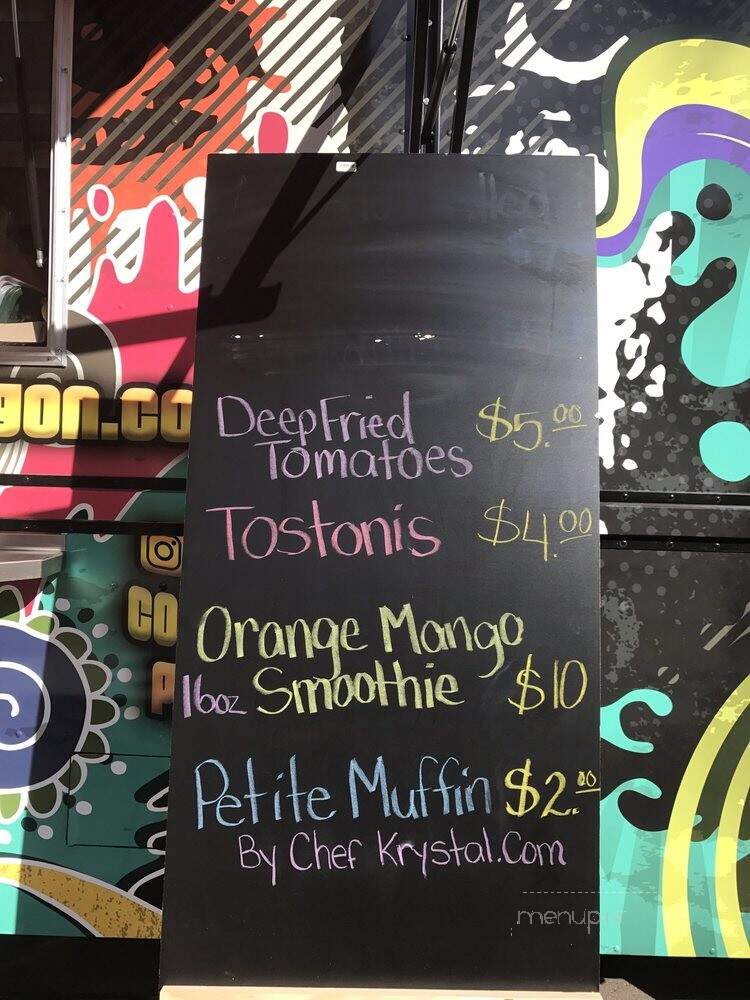 gon.co
DeepFried $5.00
Tomatoes
Tostonis $4.00
CO
Orange Mango
16oz Smoothie $10
P
Petite Muffin $2.00
By Chef Krystal.Com
menupix